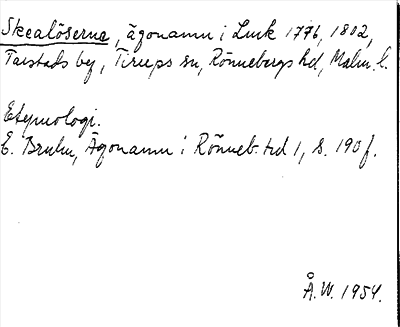 Skealöserna, ägonamn i Lmk 1776, 1802,
Tarstads by, Tirups sn, Rönnebergs hd, Malm. l.
Etymologi.
E. Bruhn, Ägonamn i Rönneb. hd 1, s. 190 f.
Å.W. 1954.